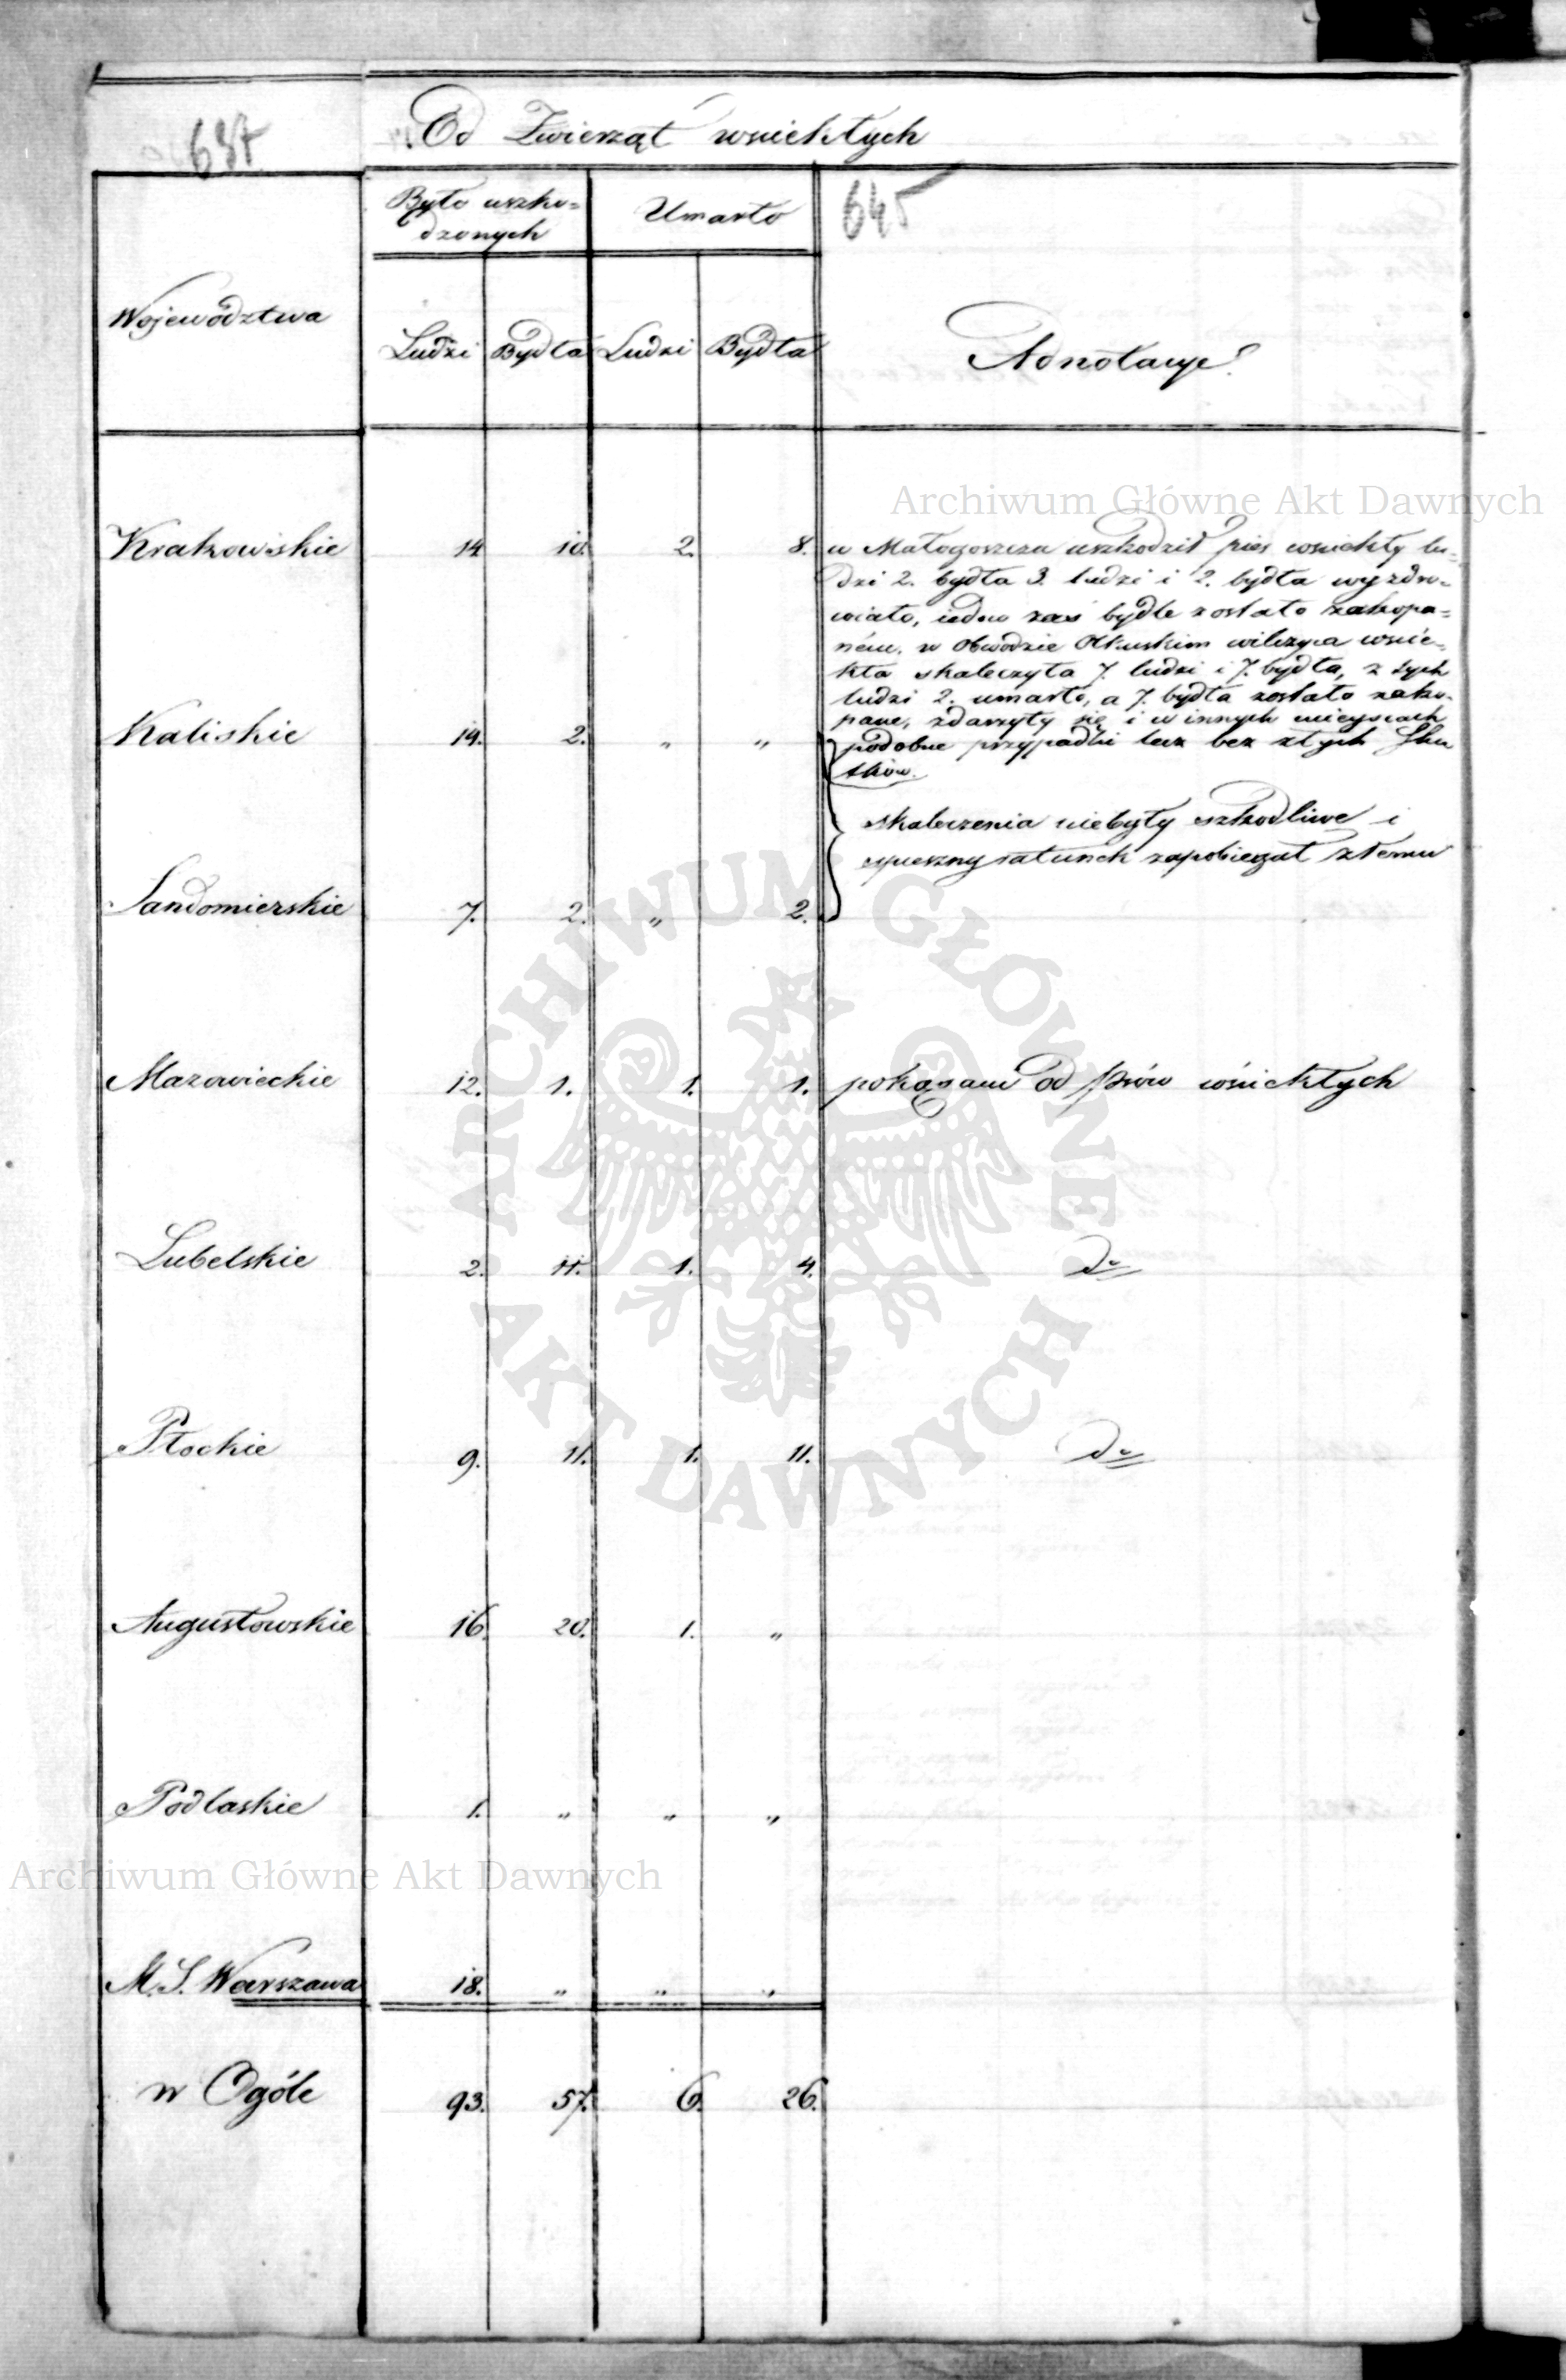 637
Od Zwierząt wsciekłych
Było uszko-
dzonych
Umarło
645
Województwa
Ludzi Bydła Ludzi Bydła
Adnotacye
Archiwum Główne Akt Dawnych
Krakowskie 14 10. 2. 8.
w Małogoszczu uszkodził pies wsciekły lu-
dzi 2. bydła 3. ludzi i 2. bydła wyzdro-
wiało, iedno zaś bydle zostało zakopa-
ném. w Obwodzie Olkuskim wilczyca wscie-
kła skaleczyła 7. ludzi i 7. bydła, z tych
ludzi 2. umarło, a 7. bydła zostało zako-
pane, zdarzyły się i w innych mieyscach
podobne przypadki lecz bez złych sku
tków.
Kaliskie 14. 2. „ „
skaleczenia niebyły szkodliwe i
spieszny ratunek zapobiegał złemu
Sandomierskie 7. 2. „ 2.
Mazowieckie 12. 1. 1. 1. pokąsani od psów wściekłych
Lubelskie 2. 11. 1. 4. do
Płockie 9. 11. 1. 11. do
Augustowskie 16. 20. 1. „
Podlaskie 1. „ „ „
Archiwum Główne Akt Dawnych
M. S. Warszawa 18. „ „ „
w Ogóle 93. 57. 6. 26.
ARCHIWUM GŁÓWNE
AKT DAWNYCH